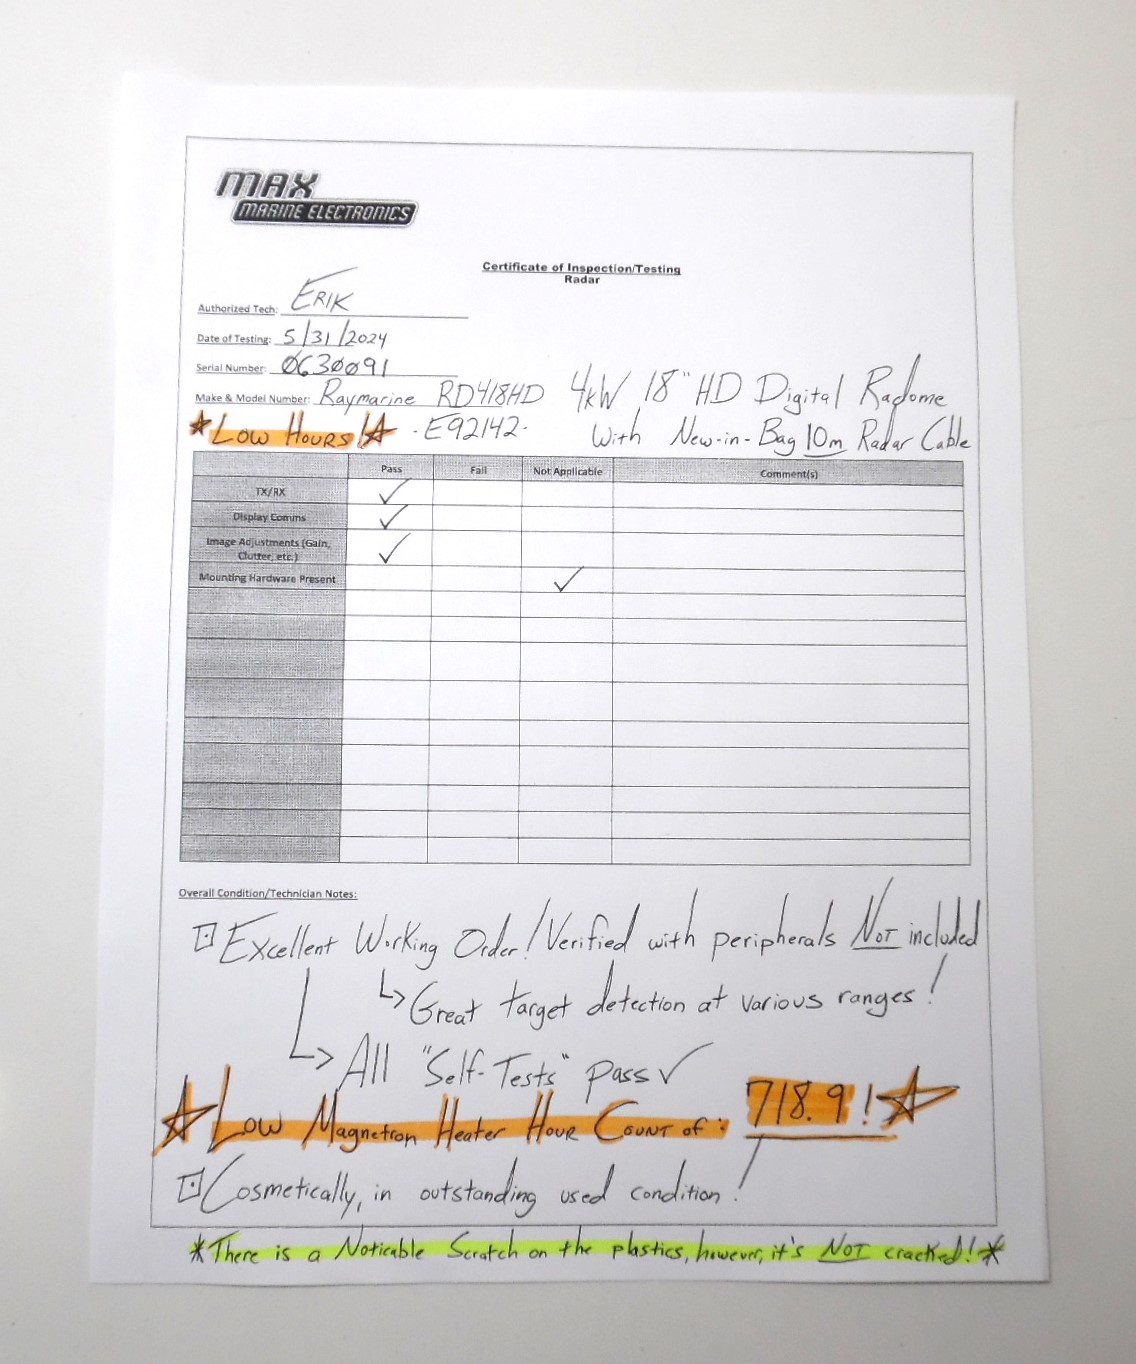 MAX
MARINE ELECTRONICS
Certificate of Inspection/Testing
Radar
Authorized Tech: ERIK
Date of Testing: 5/31/2024
Serial Number: 0630091
Make & Model Number: Raymarine RD418HD 4kW 18" HD Digital Radome
*Low Hours!☆ · E92142 · With New-in-Bag 10m Radar Cable
Pass Fail Not Applicable Comment(s)
TX/RX ✓
Display Comms ✓
Image Adjustments (Gain,
Clutter, etc.) ✓
Mounting Hardware Present ✓
Overall Condition/Technician Notes:
⊡ Excellent Working Order! Verified with peripherals NOT included
↳ Great target detection at various ranges!
↳ All "Self-Tests" pass ✓
☆ Low Magnetron Heater Hour Count of: 718.9! ☆
⊡ Cosmetically, in outstanding used condition!
*There is a Noticable Scratch on the plastics, however, it's NOT cracked!*